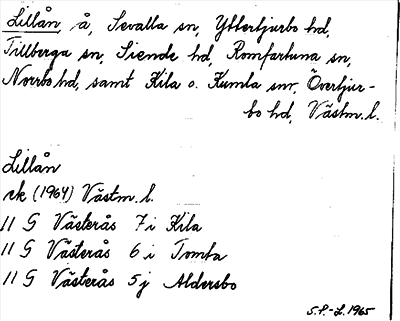 Lillån, å, Sevalla sn, Yttertjurbo hd,
Tillberga sn, Siende hd, Romfartuna sn,
Norrbo hd, samt Kila o. Kumla snr, Övertjur-
bo hd, Västm. l.
Lillån
rk (1964) Västm. l.
11 G Västerås 7 i Kila
11 G Västerås 6 i Tomta
11 G Västerås 5 j Aldersbo
S.P.-L. 1965